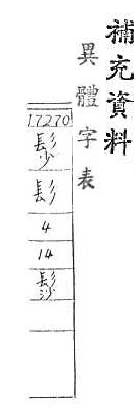 補充資料
異體字表
17270
髟
4
14
髿